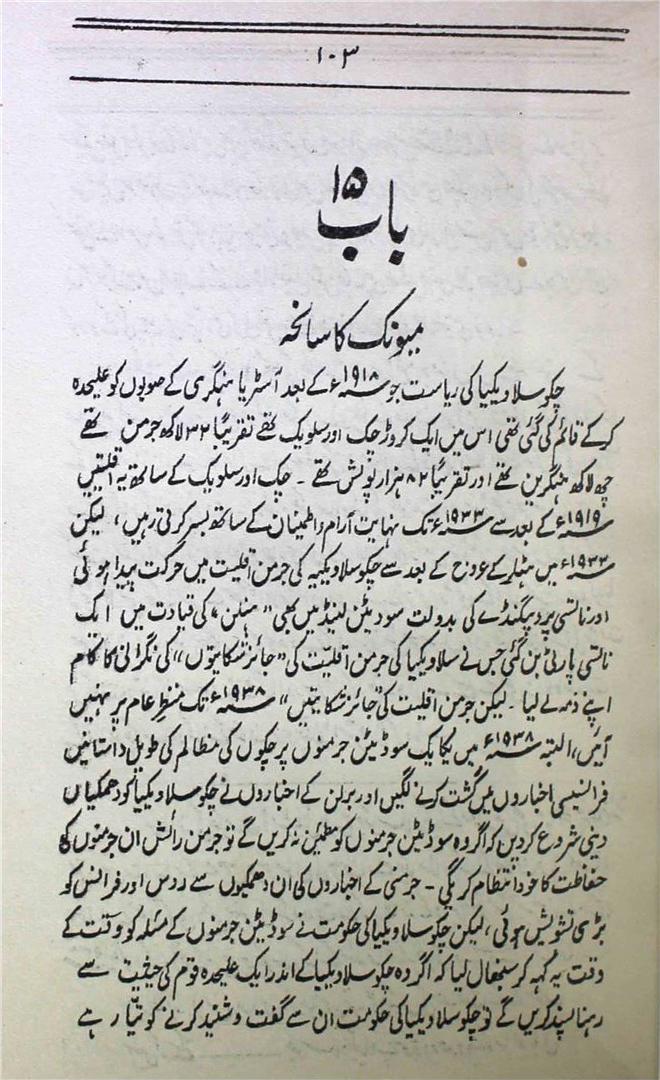 ۱۰۳
باب ۱۵
میونک کا سانحہ
چکوسلاویکیا کی ریاست جو ۱۹۱۸ء کے بعد آسٹریا ہنگری کے صوبوں کو علیحدہ
کر کے قائم کی گئی تھی اس میں ایک کروڑ چک اور سلویک تھے تقریباً ۳۲ لاکھ جرمن تھے
چھ لاکھ ہنگرین تھے اور تقریباً ۸۲ ہزار پولش تھے ۔ چک اور سلویک کے ساتھ یہ اقلیتیں
۱۹۱۹ء کے بعد سے ۱۹۳۳ء تک نہایت آرام و اطمینان کے ساتھ بسر کرتی رہیں ، لیکن
۱۹۳۳ء میں ہٹلر کے عروج کے بعد سے چکوسلاویکیہ کی جرمن اقلیت میں حرکت پیدا ہوئی
اور ناتسی پروپیگنڈے کی بدولت سوڈیٹن لینڈ میں بھی ”ہنلن“ کی قیادت میں ایک
ناتسی پارٹی بن گئی جس نے سلاویکیا کی جرمن اقلیّت کی ”جائز شکایتوں“ کی نگرانی کا کام
اپنے ذمہ لے لیا ۔ لیکن جرمن اقلیت کی ”جائز شکایتیں“ ۱۹۳۸ء تک منظرِ عام پر نہیں
آئیں ، البتہ ۱۹۳۸ء میں یکایک سوڈیٹن جرمنوں پر چکوں کی مظالم کی طویل داستانیں
فرانسیسی اخباروں میں گشت کرنے لگیں اور برلن کے اخباروں نے چکوسلاویکیا کو دھمکیاں
دینی شروع کر دیں کہ اگر وہ سوڈیٹن جرمنوں کو مطمئن نہ کریں گے تو جرمن رائش ان جرمنوں کی
حفاظت کا خود انتظام کریگی ۔ جرمنی کے اخباروں کی ان دھمکیوں سے روس اور فرانس کو
بڑی تشویش ہوئی ، لیکن چکوسلاویکیا کی حکومت نے سوڈیٹن جرمنوں کے مسئلہ کو وقت کے
وقت یہ کہہ کر سنبھال لیا کہ اگر وہ چکوسلاویکیا کے اندر ایک علیحدہ قوم کی حیثیت سے
رہنا پسند کریں گے تو چکوسلاویکیا کی حکومت ان سے گفت و شنید کرنے کو تیّار ہے